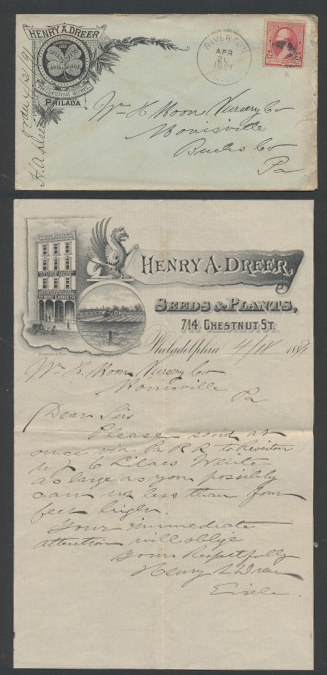 HENRY A. DREER
PHILADA
RIVERTON
APR
20
Wm H. Moon Nursery Co
Morrisville
Bucks Co
Pa
HENRY A. DREER,
SEEDS & PLANTS,
714 CHESTNUT ST.
Philadelphia 4/18 1891
Wm H. Moon Nursery Co
Morrisville
Pa
Dear Sirs
Please send at
once via Pa R R to Riverton
N J 6 Lilacs White
as large as you possibly
can not less than four
feet high.
Your immediate
attention will oblige
Yours Respectfully
Henry A Dreer
Eisele